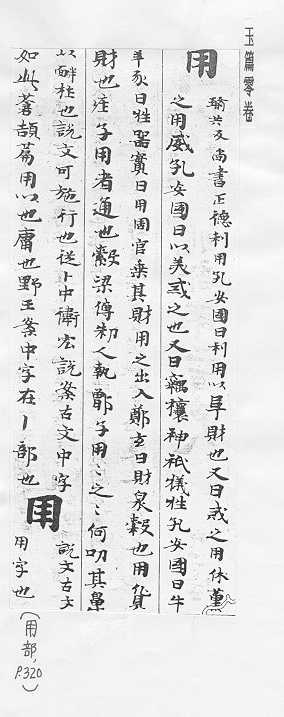 玉篇零卷
用 瑜共反尚書正德利用孔安國曰利用以阜財也又曰戒之用休董
之用威孔安國曰以美戒之也又曰竊攘神祇犧牷孔安國曰牛
羊豕曰牲器實曰用周官楽其財用之出入鄭玄曰財泉穀也用貨
財也庄子用者通也穀梁傳邾人執鄫子用〻之〻何叩其鼻
以衈社也說文可施行也從卜中衛宏說案古文中字
如此蒼頡萹用以也庸也野王案中字在丨部也
說文古文
用字也
(用部, P.320)